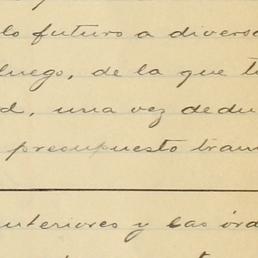 lo futuro a divers
luego, de la que t
d, una vez dedu
presupuesto tram
nteriores y las órd